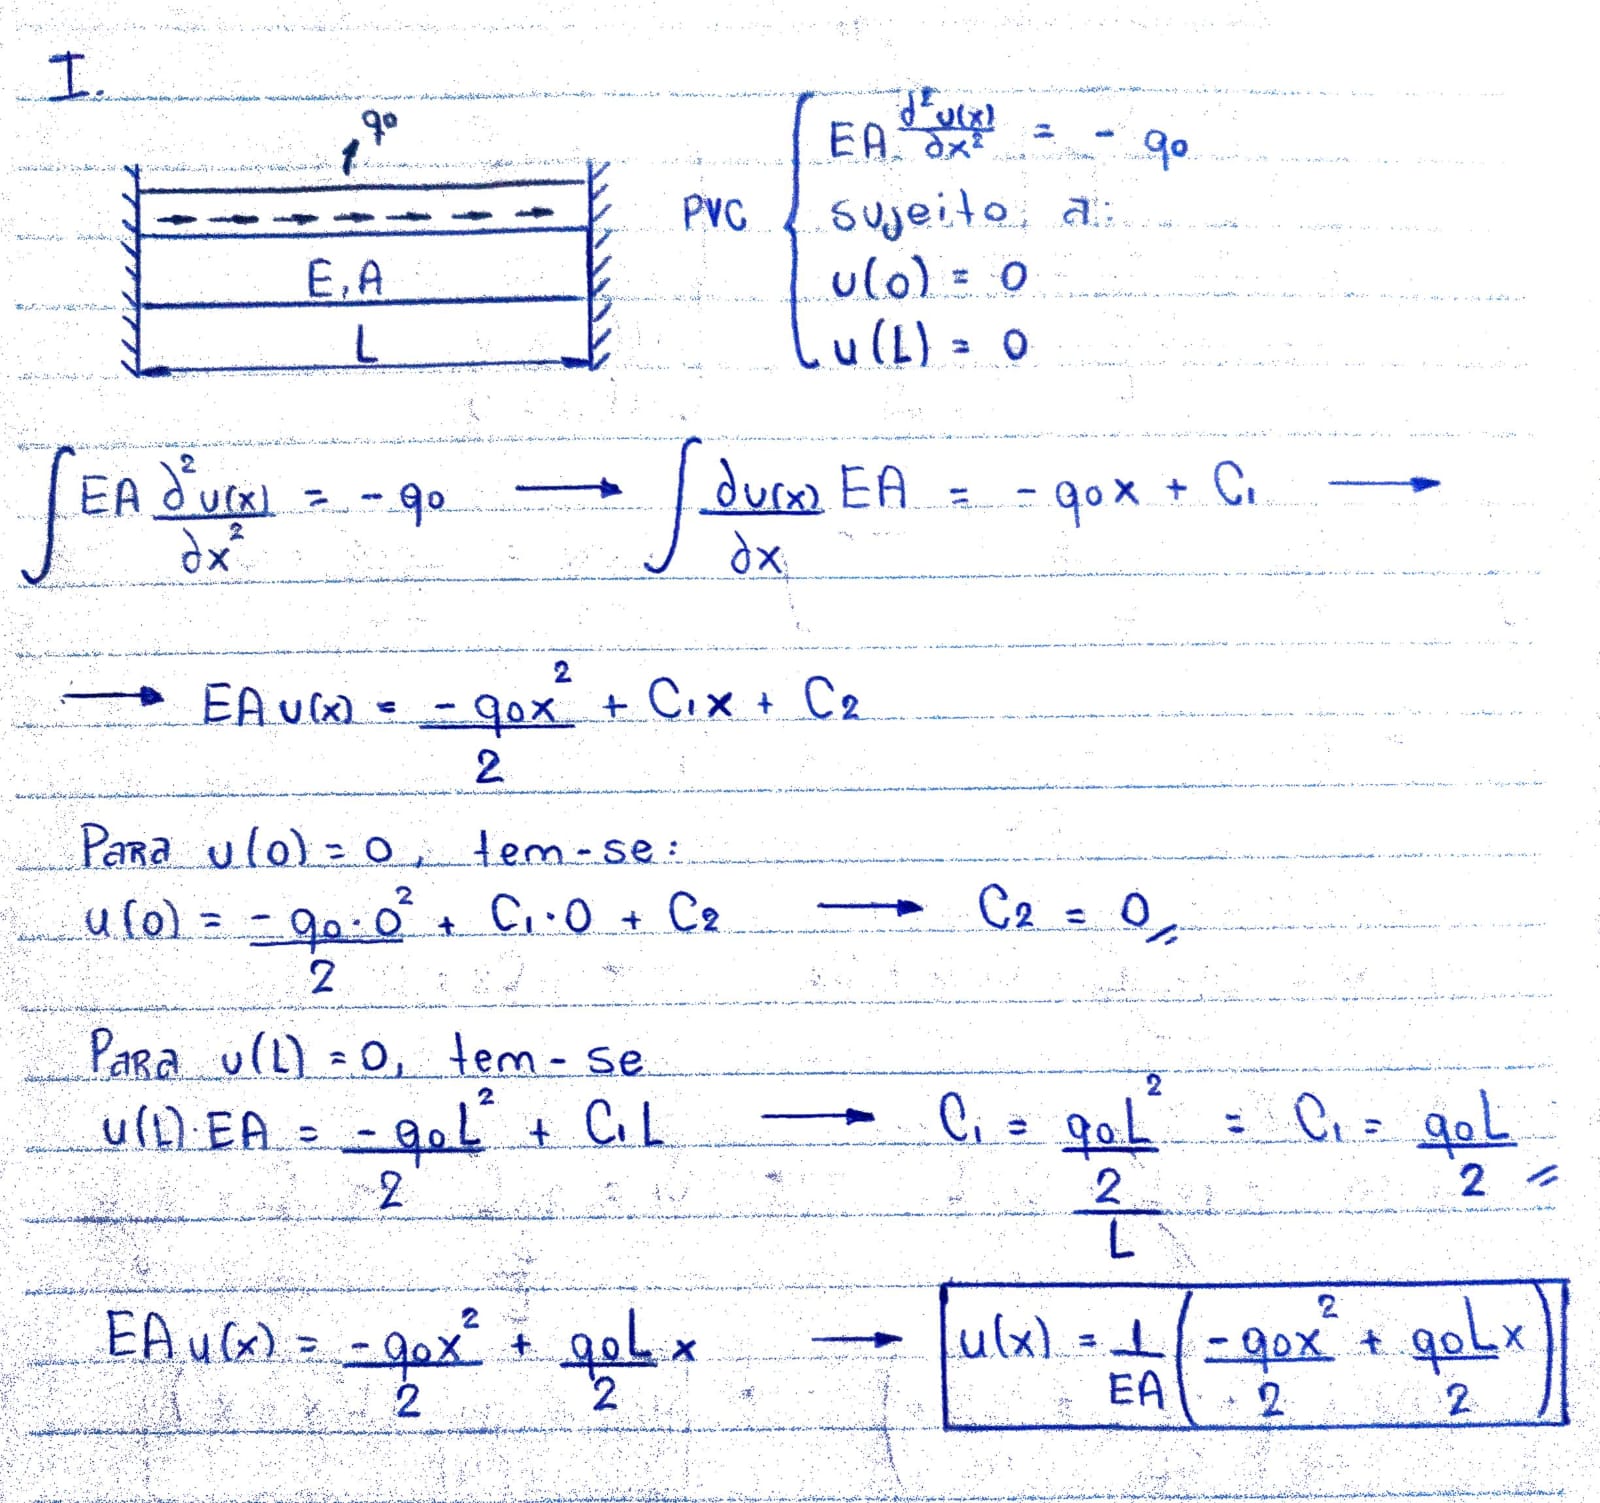 I.
q₀
E, A
L
PVC { EA d²u(x)/∂x² = - q₀
sujeito a:
u(0) = 0
u(L) = 0
∫ EA ∂²u(x)/∂x² = - q₀ → ∫ ∂u(x)/∂x EA = - q₀x + C₁ →
→ EA u(x) = - q₀x²/2 + C₁x + C₂
Para u(0) = 0, tem-se:
u(0) = - q₀·0²/2 + C₁·0 + C₂ → C₂ = 0
Para u(L) = 0, tem-se
u(L)·EA = - q₀L²/2 + C₁L → C₁ = q₀L²/2/L = C₁ = q₀L/2
EA u(x) = - q₀x²/2 + q₀L/2 x → u(x) = 1/EA (- q₀x²/2 + q₀Lx/2)